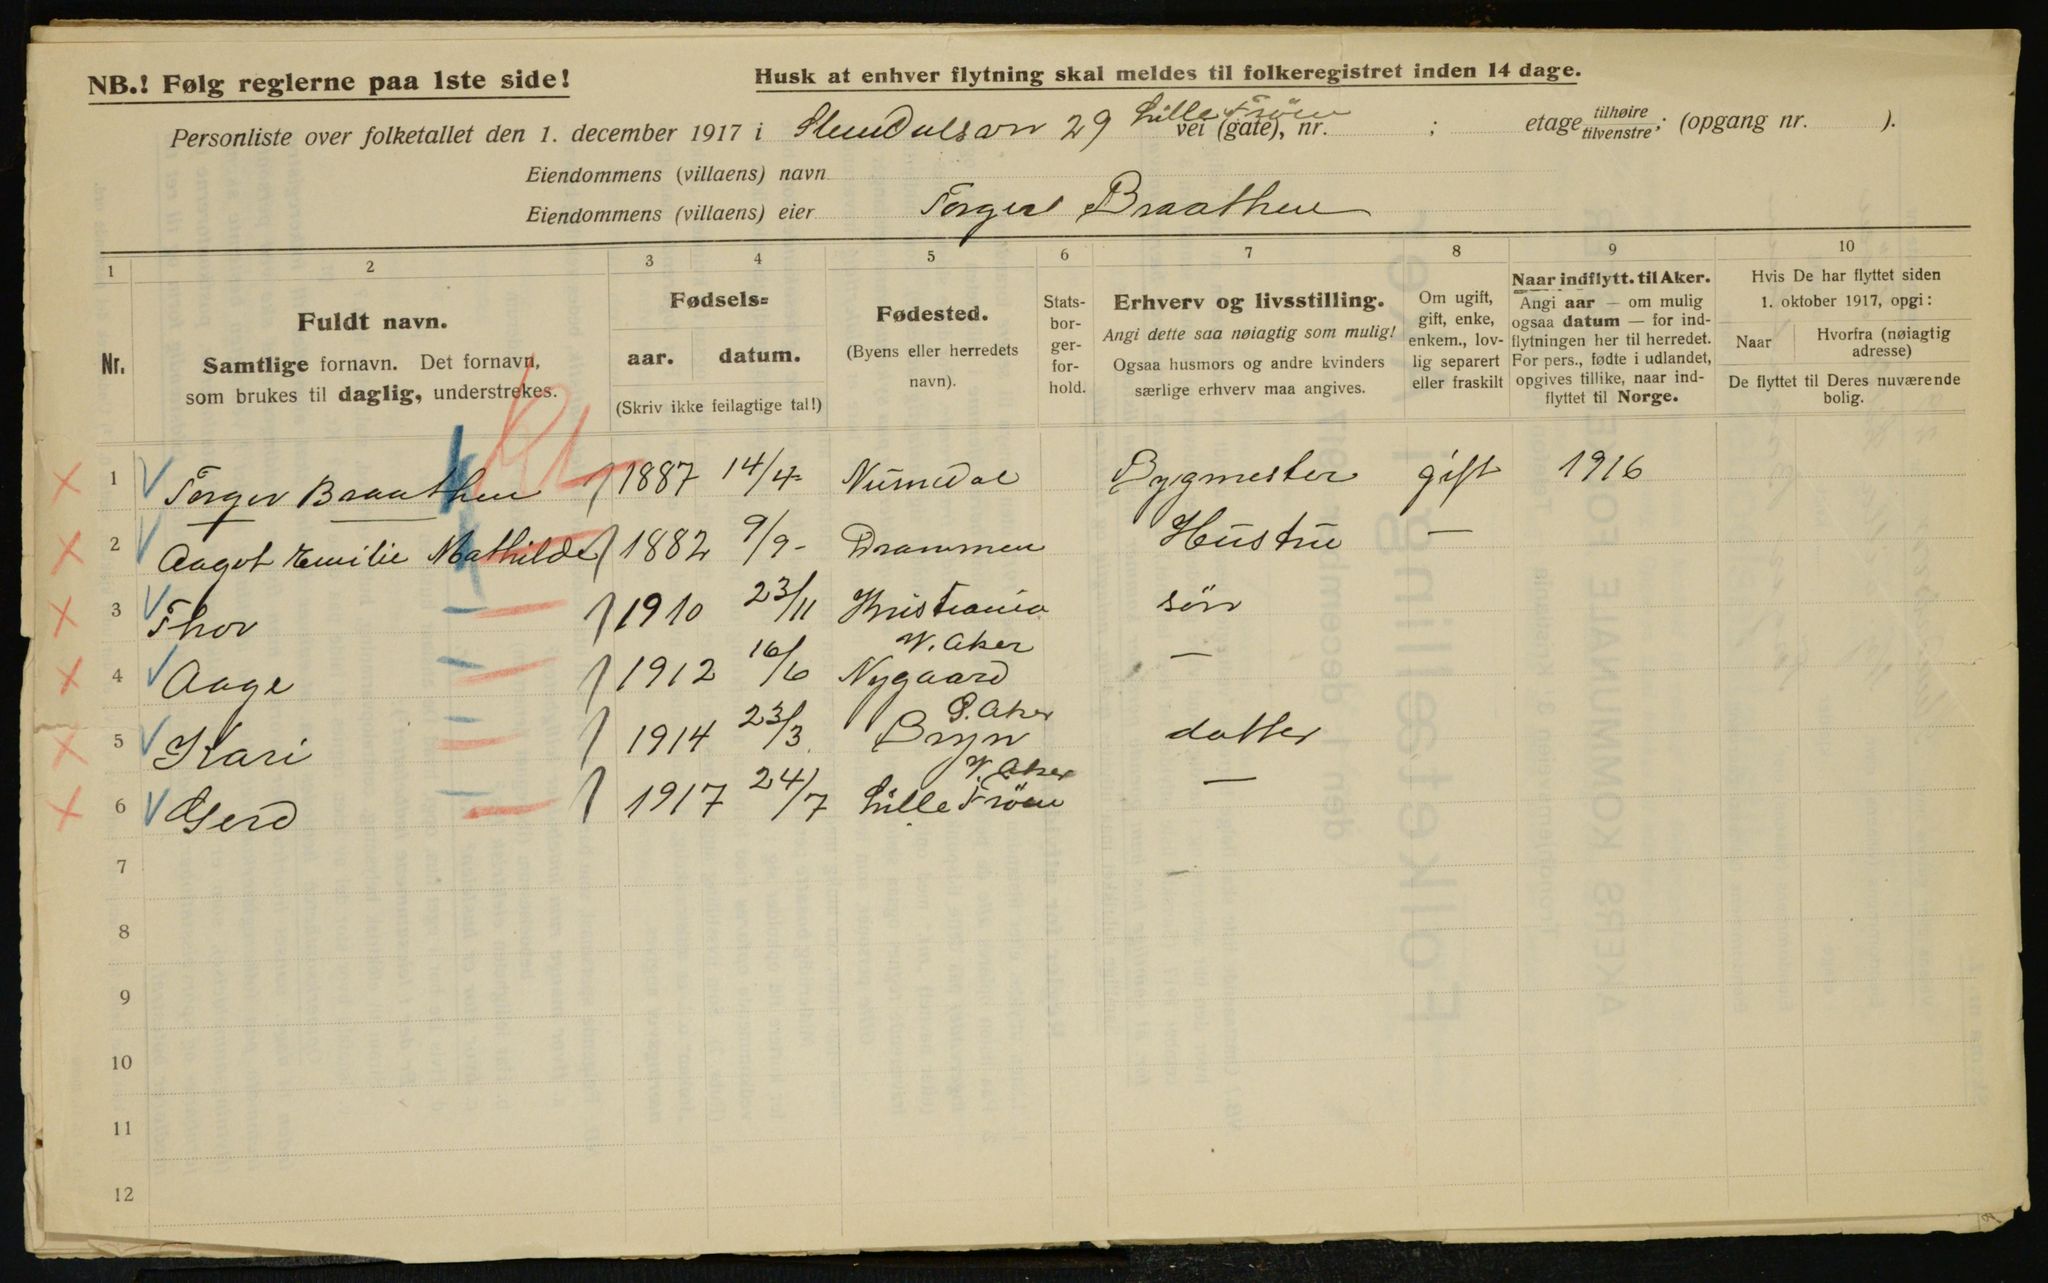 NB.! Følg reglerne paa 1ste side!
Husk at enhver flytning skal meldes til folkeregistret inden 14 dage.
Personliste over folketallet den 1. december 1917 i 29 Lille Frøen vei (gate), nr. ; etage tilhøire tilvenstre; (opgang nr. ).
Eiendommens (villaens) navn
Eiendommens (villaens) eier Torger Braathen
1 2 3 4 5 6 7 8 9 10
Nr.
Fuldt navn.
Samtlige fornavn. Det fornavn,
som brukes til daglig, understrekes.
Fødsels=
aar. datum.
(Skriv ikke feilagtige tal!)
Fødested.
(Byens eller herredets
navn).
Stats-
bor-
ger-
for-
hold.
Erhverv og livsstilling.
Angi dette saa nøiagtig som mulig!
Ogsaa husmors og andre kvinders
særlige erhverv maa angives.
Om ugift,
gift, enke,
enkem., lov-
lig separert
eller fraskilt
Naar indflytt. til Aker.
Angi aar — om mulig
ogsaa datum — for ind-
flytningen her til herredet.
For pers., fødte i utlandet,
opgives tillike, naar ind-
flyttet til Norge.
Hvis De har flyttet siden
1. oktober 1917, opgi:
Naar Hvorfra (nøiagtig
adresse)
De flyttet til Deres nuværende
bolig.
1 Torger Braathen 1887 14/4 Numedal Bygmester gift 1916
2 Aagot Emilie Mathilde 1882 9/9 - Drammen Hustru —
3 Thor — 1910 23/11 Kristiania søn
4 Aage — 1912 16/6 V. Aker Nygaard —
5 Kari — 1914 23/3 Ø. Aker Bryn datter
6 Gerd — 1917 24/7 V. Aker Lille Frøen —
7
8
9
10
11
12